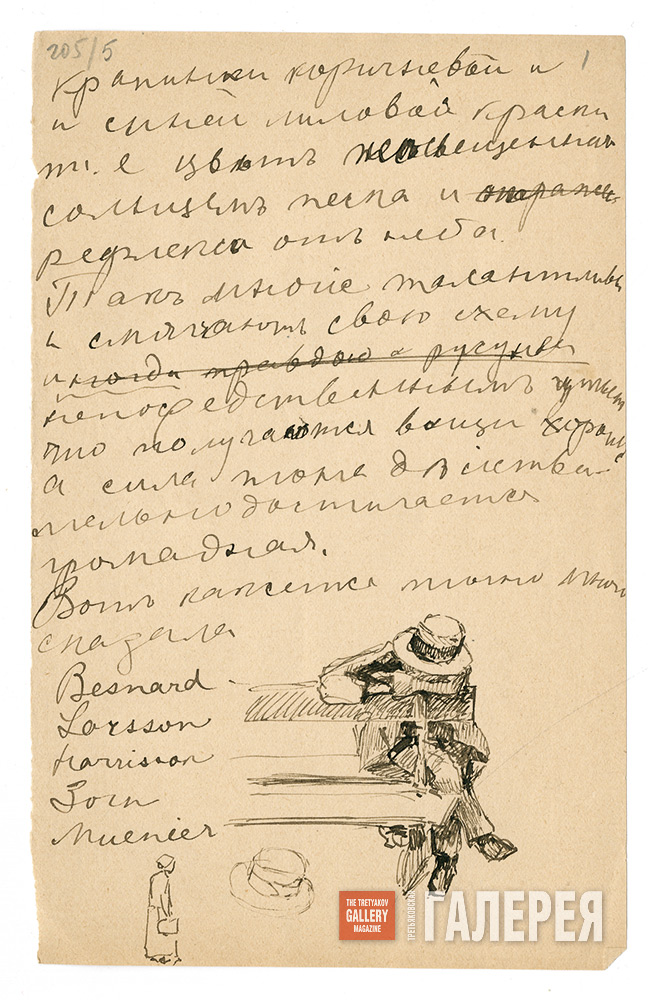 205/5
1
крапинки коричневой и
и синей лиловой краски
т. е цвѣтъ неосвещеннаго
солнцемъ песка и отражен
рефлекса отъ неба.
Такъ многіе талантливы
и смягчаютъ свою схему
иногда правдою рисунка
непосредственнымъ чутьем
что получаются вещи хорошіе
а сила тона дѣйстви-
тельно достигается
громадная.
Вотъ кажется точно
Besnard
Larsson
Harrisson
Zorn
Muenier
THE TRETYAKOV
GALLERY
MAGAZINE
ТРЕТЬЯКОВСКАЯ
ГАЛЕРЕЯ